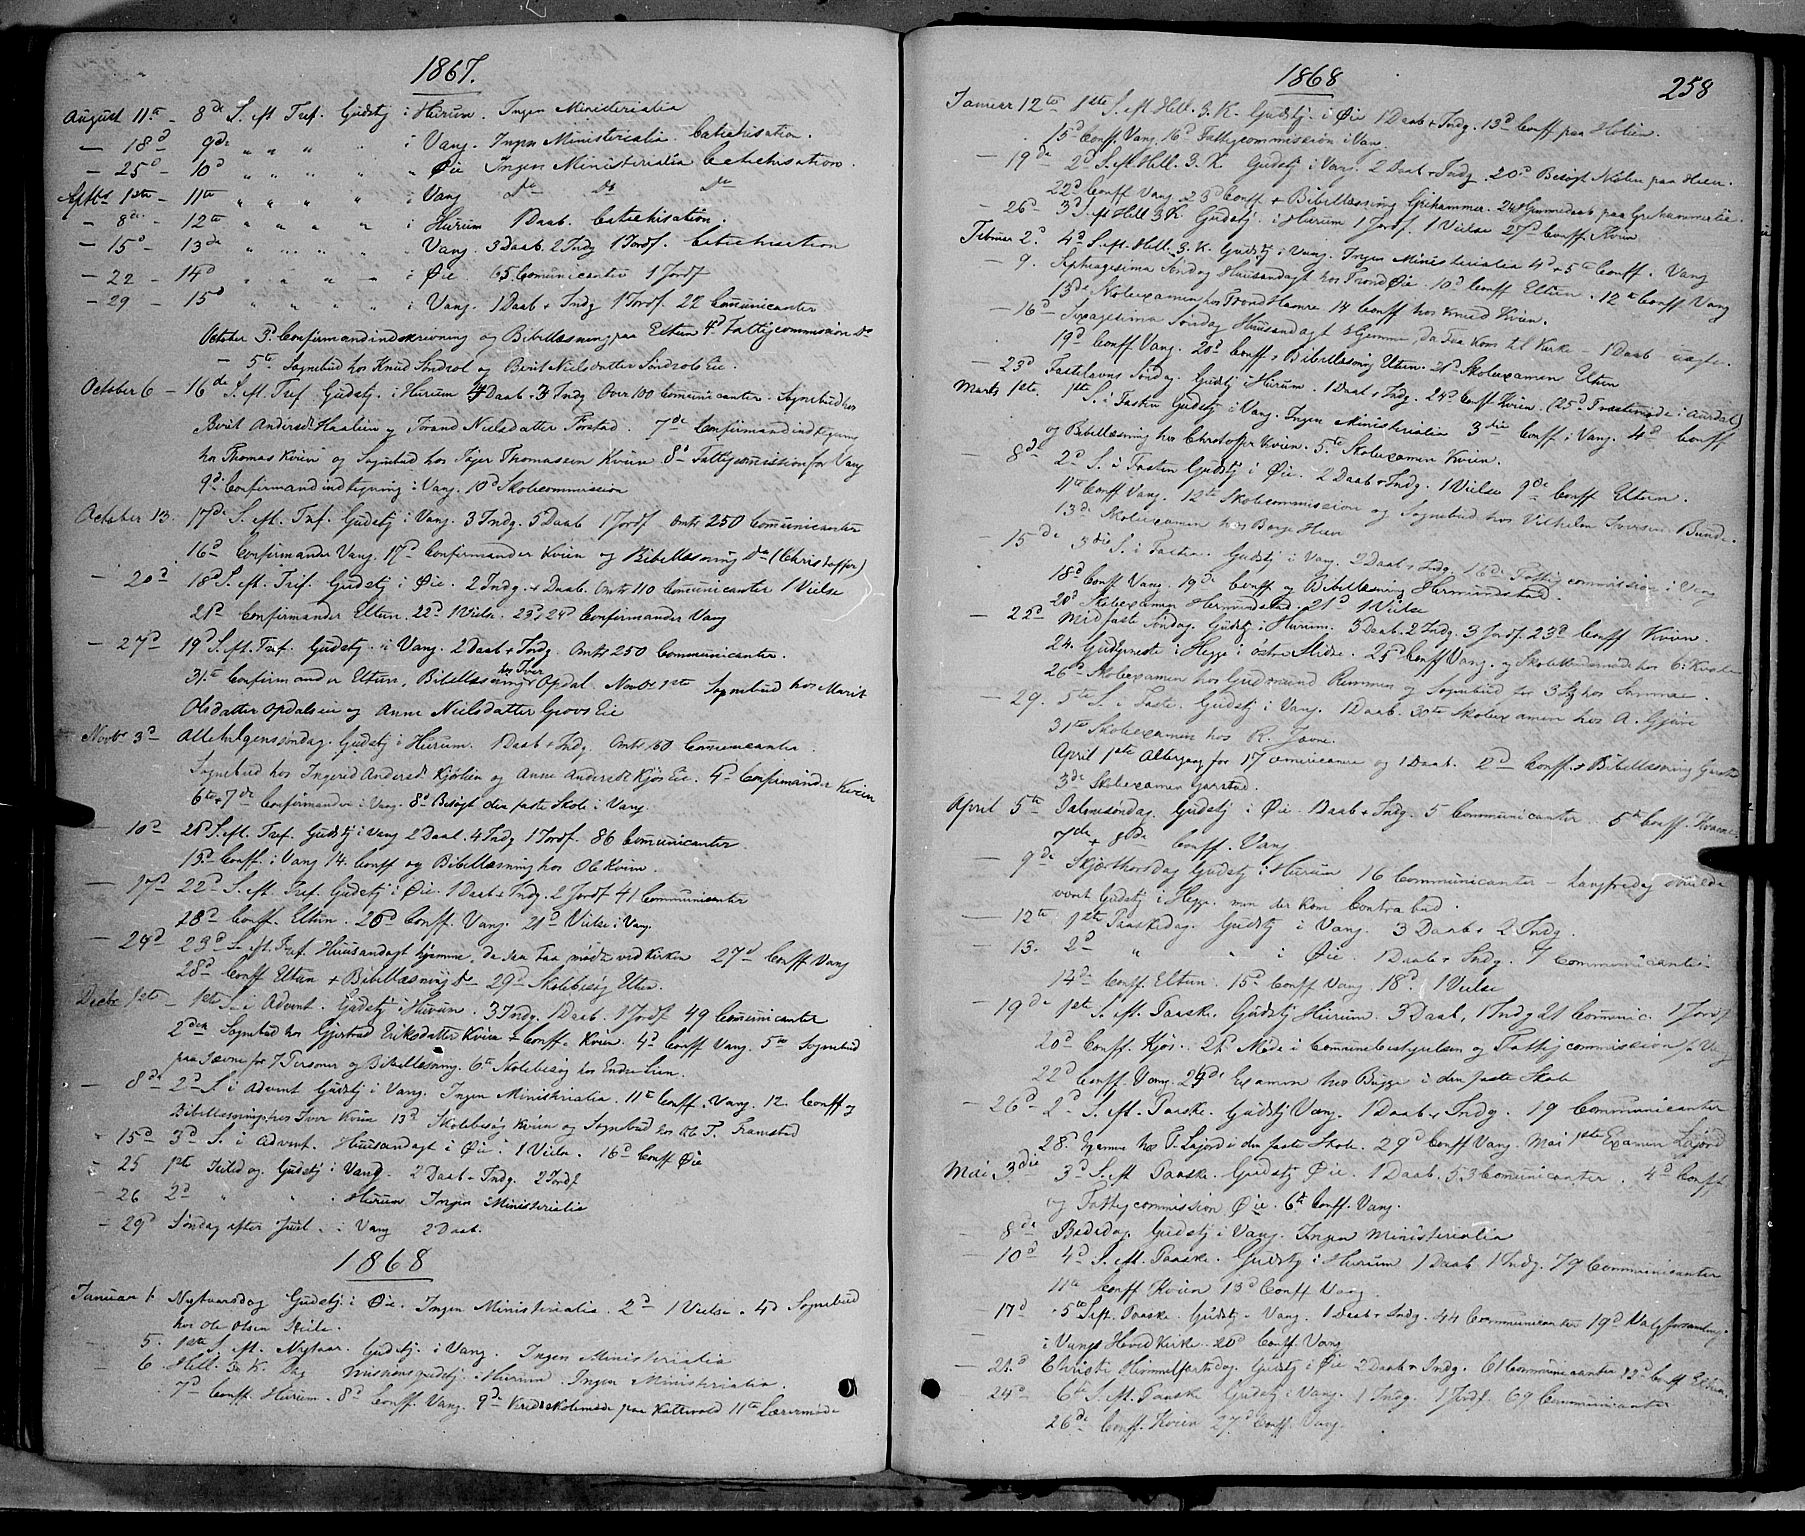 1867.
August 11te - 8de S. eft Tref. Gudstj i Hurum. Ingen Ministerialia
— 18d 9de " " " " i Vang. Ingen Ministerialia Catechisation.
— 25d - 10d " " " " " Øie Ingen Ministerialia Catechisation.
Septbr 1ste - 11te " " " " i Vang do do do
— 8de - 12te " " " " i Hurum 1 Daab. Catechisation.
— 15d - 13de " " " " Vang. 3 Daab. 2 Indg 1 Jordf. Catechisation
— 22 - 14d " " " - i Øie 65 Comunicanter 1 Jordf
— 29 - 15d " " " " i Vang. 1 Daab + Indg 1 Jordf. 22 Comunicanter
October 3d Confirmandindskrivning og Bibellæsning paa Eltun 4d Fattigcommission do
— 5te Sognebud hos Knud Søndrol og Berit Nielsdatter Søndrols Eie.
October 6 - 16de S. eft. Tref Gudstj. i Hurum 4 Daab + 3 Indg Over 100 Comunicanter. Sognebud hos
Berit Andersdr Haalien og Torand Nielsdatter Forstad. 7de Confirmandindtegning
hos Thomas Kvien og Sognebud hos Thomassen Kvien 8d Fattigcommission for Vang
9d Confirmandindtegning i Vang. 10d Skolecommission
October 13. 17de S. eft. Tref. Gudstj i Vang. 3 Indg. 5 Daab 1 Jordf omtr 250 Comunicanter
16d Confirmander Vang. 17d Confirmander Kvien og Bibellæsning do (Christoffer)
— 20d 18d S. eft. Tref. Gudstj i Øie. 2 Indg. + Daab. Omtr 110 Comunicanter 1 Vielse
21d Confirmander Eltun. 22d 1 Vielse. 23d 24d Confirmander Vang
— 27d 19d S. eft. Tref. Gudstj. i Vang. 2 Daab + Indg. Omtr 250 Communicanter.
31te Confirmander Eltun, Bibellæsning hos Iver Opdal. Novbr 1ste Sognebud hos Marit
Olsdatter Opdalseie og Anne Nielsdatter Grovs Eie
Novbr 3d Allehelgenssøndag. Gudstj i Hurum. 1 Daab + Indg. Omtr 160 Comunicanter.
Sognebud hos Ingerid Andersdr Kjørlien og Anne Andersdr Kjøs Eie. 4d Confirmander Kvien
6te + 7de Confirmander i Vang. 8d Besøgt den faste Skole i Vang.
— 10d 21d S. eft. Tref. Gudstj i Vang 2 Daab. 4 Indg 1 Jordf. 86 Comunicanter.
13d Conff. i Vang 14. Conff og Bibellæsning hos Ole Kvien.
— 17d 22d S. eft Tref. Gudstj i Øie. 1 Daab + Indg. 2 Jordf 41 Communicanter
Conff. Eltun. 20d Conff. Vang. 21d Vielse i Vang.
— 24d 23d S. eft. Tref. Huusandagt hjemme, da saa Faa mødte ved Kirken 27d Conff Vang
28d Conff Eltun + Bibellæsning do 29d Skolebesøg Eltun.
Decbr 1ste - 1ste S. i Advent. Gudstj i Hurum. 3 Indg. 1 Daab. 1 Jordf 49 Comunicanter
2den Sognebud hos Gjertrud Eriksdatter Kvien + Conff. Kvien. 4d Conff Vang. 5te Sognebud
paa Jævne for 7 Personer og Bibellæsning. 6te Skolebesøg hos Endre Lien.
— 8de 2d S. i Advent Gudstj i Vang. Ingen Ministerialia. 11te Conff. Vang. 12. Conff og
Bibellæsning hos Iver Kvien 13d Skolebesøg Kvien og Sognebud hos T. Framstad
— 15d 3d S. i Advent. Huusandagt i Øie. 1 Vielse. 16d Conff Øie
— 25 1ste Juledag. Gudstj i Vang. 2 Daab + Indg. 2 Jordf
— 26 2d " " " Hurum Ingen Ministerialia
— 29d Søndag efter Juul - i Vang 2 Daab.
1868
Januar 1 Nytaarsdag Gudstj i Øie. Ingen Ministerialia. 2d 1 Vielse. 4d Sognebud
hos Ole Olsen
— 5. 1ste S. eft. Nytaar. Gudstj. i Vang. Ingen Ministerialia
— 6 Hell. 3 K. Dag Missionsgudstj. i Hurum. Ingen Ministerialia.
7d Conff. Hurum. 8d Conff. Vang. 9d Kredsskolemøde paa Kattevold 11te Lærermøde
1868
258
Januar 12te 1ste S. eft Hell. 3. K. Gudstj. i Øie 1 Daab + Indg. 13d Conff paa Holien.
15d Conff. Vang. 16d Fattigcommission i Vang.
— 19de 2d S. eft Hell. 3. K. Gudstj i Vang. 2 Daab + Indg. 20d Besøgt Skolen paa Hien.
22d Conff Vang. 23d Conff + Bibellæsning Grihammer. 24d Hjemmedaab paa Grihammerlie.
— 26d 3d S. eft Hell 3 K. Gudstj. i Hurum 1 Jordf. 1 Vielse 27d Conff. Kvien
Februar 2d 4d S. eft. Hell. 3. K. Gudstj i Vang. Ingen Ministerialia 4d + 5te Conff. Vang
— 9. Septuagesima Søndag Huusandagt hos Trond Øie. 10d Conff Eltun. 12te Conff Vang
13de Skolexamen hos Trond Hamre 14 Conff hos Knud Kvien.
— 16d Sexagesima Søndag Huusandagt hjemme, da Faa kom til Kirke - 1 Daab - uægte.
19d Conff Vang. 20d Conff + Bibellæsning Eltun. 21d Skolexamen Eltun
— 23d Fastelavns Søndag. Gudstj Hurum. 1 Daab + Indg. 24d Conff Kvien. (25d Præstemøde i Aurdal)
Marts 1ste. 1ste S. i Fasten Gudstj i Vang. Ingen Ministerialia 3die Conff i Vang. 4d Conff
og Bibellæsning hos Christoffer Kvien. 5te Skolexamen Kvien.
— 8de 2d S. i Fasten Gudstj i Øie. 2 Daab + Indg. 1 Vielse 9de Conff. Eltun.
11te Conff Vang. 12te Skolecommission og Sognebud hos Vilhelm Iversen Bunde.
13de Skolexamen hos Børge Hien
— 15de 3die S. i Fasten Gudstj i Vang. 2 Daab + Indg. 16de Fattigcommission i Vang
18d Conff Vang. 19de Conff og Bibellæsning Hermundstad.
20d Skolexamen Hermundstad. 21d 1 Vielse
— 22d Midfaste Søndag. Gudstj i Hurum. 3 Daab. 2 Indg. 3 Jordf. 23d Conff Kvien.
24. Gudstjeneste i Hegge i østre Slidre. 25d Conff Vang. og hos
26d Skolexamen hos Gudmund Remmen og Sognebud for 3 Sg hos Samme.
— 29. 5te S. i Faste. Gudstj i Vang. 1 Daab. 30te Skolexamen hos A. Gjeve
31te Skolexamen hos K. Jævne.
April 1ste Altergang for 17 Americanere og 1 Daab. 2d Conff + Bibellæsning Garstad
3de Skolexamen Garstad.
April 5te Palmesøndag. Gudstj i Øie. 1 Daab + Indg. 5 Communicanter. 5te Conff. Hvame
7de + 8de Conff. Vang
— 9de Skjærthorsdag Gudstj i Hurum 16 Communicanter - Langfredag skulde
været Gudstj i Hegge, men der kom Contrabud.
— 12te 1ste Paaskedag. Gudstj i Vang. 3 Daab + 2 Indg.
— 13. 2d " " i Øie. 1 Daab + Indg. 7 Communicanter
14de Conff. Eltun. 15d Conff Vang. 18d 1 Vielse
— 19de 1ste S. eft. Paaske. Gudstj Hurum. 3 Daab, 1 Indg 21 Communic. 1 Jordf
20d Conff. Kjøs. 21d Møde i Communebestyrelsen og Fattigcommission for Vang
22d Conff. Vang. 24de Examen hos Bugge i den faste Skole
— 26d 2d S. eft. Paaske. Gudstj Vang. 1 Daab + Indg. 19 Communicanter
28. Examen hos T. Lajord i den faste Skole. 29d Conff Vang. Mai 1ste Examen Lajord
Mai 3die 3d S. eft Paaske. Gudstj Øie. 1 Daab. 53 Comunicanter. 4d Conff
og Fattigcommission Øie. 6te Conff. Vang.
— 8de Bededag. Gudstj i Vang. Ingen Ministerialia
— 10d 4d S. eft. Paaske. Gudstj i Hurum 1 Daab. 1 Indg. 79 Communicanter
11te Conff Kvien 13d Conff Vang.
— 17d 5te S. eft. Paaske. Gudstj. Vang. 1 Daab + Indg. 44 Communicanter 19d Valgforsamling
i Vangs Hovedkirke. 20d Conff. Vang
— 21d Christi Himmelfartsdag. Gudstj i Øie 2 Daab + Indg. 61 Communicanter 22d Conff Eltun
— 24d 6te S. eft. Paaske Gudstj i Vang. 1 Indg. 1 Jordf. 69 Communicanter
26de Conff. Kvien 27d Conff. Vang.